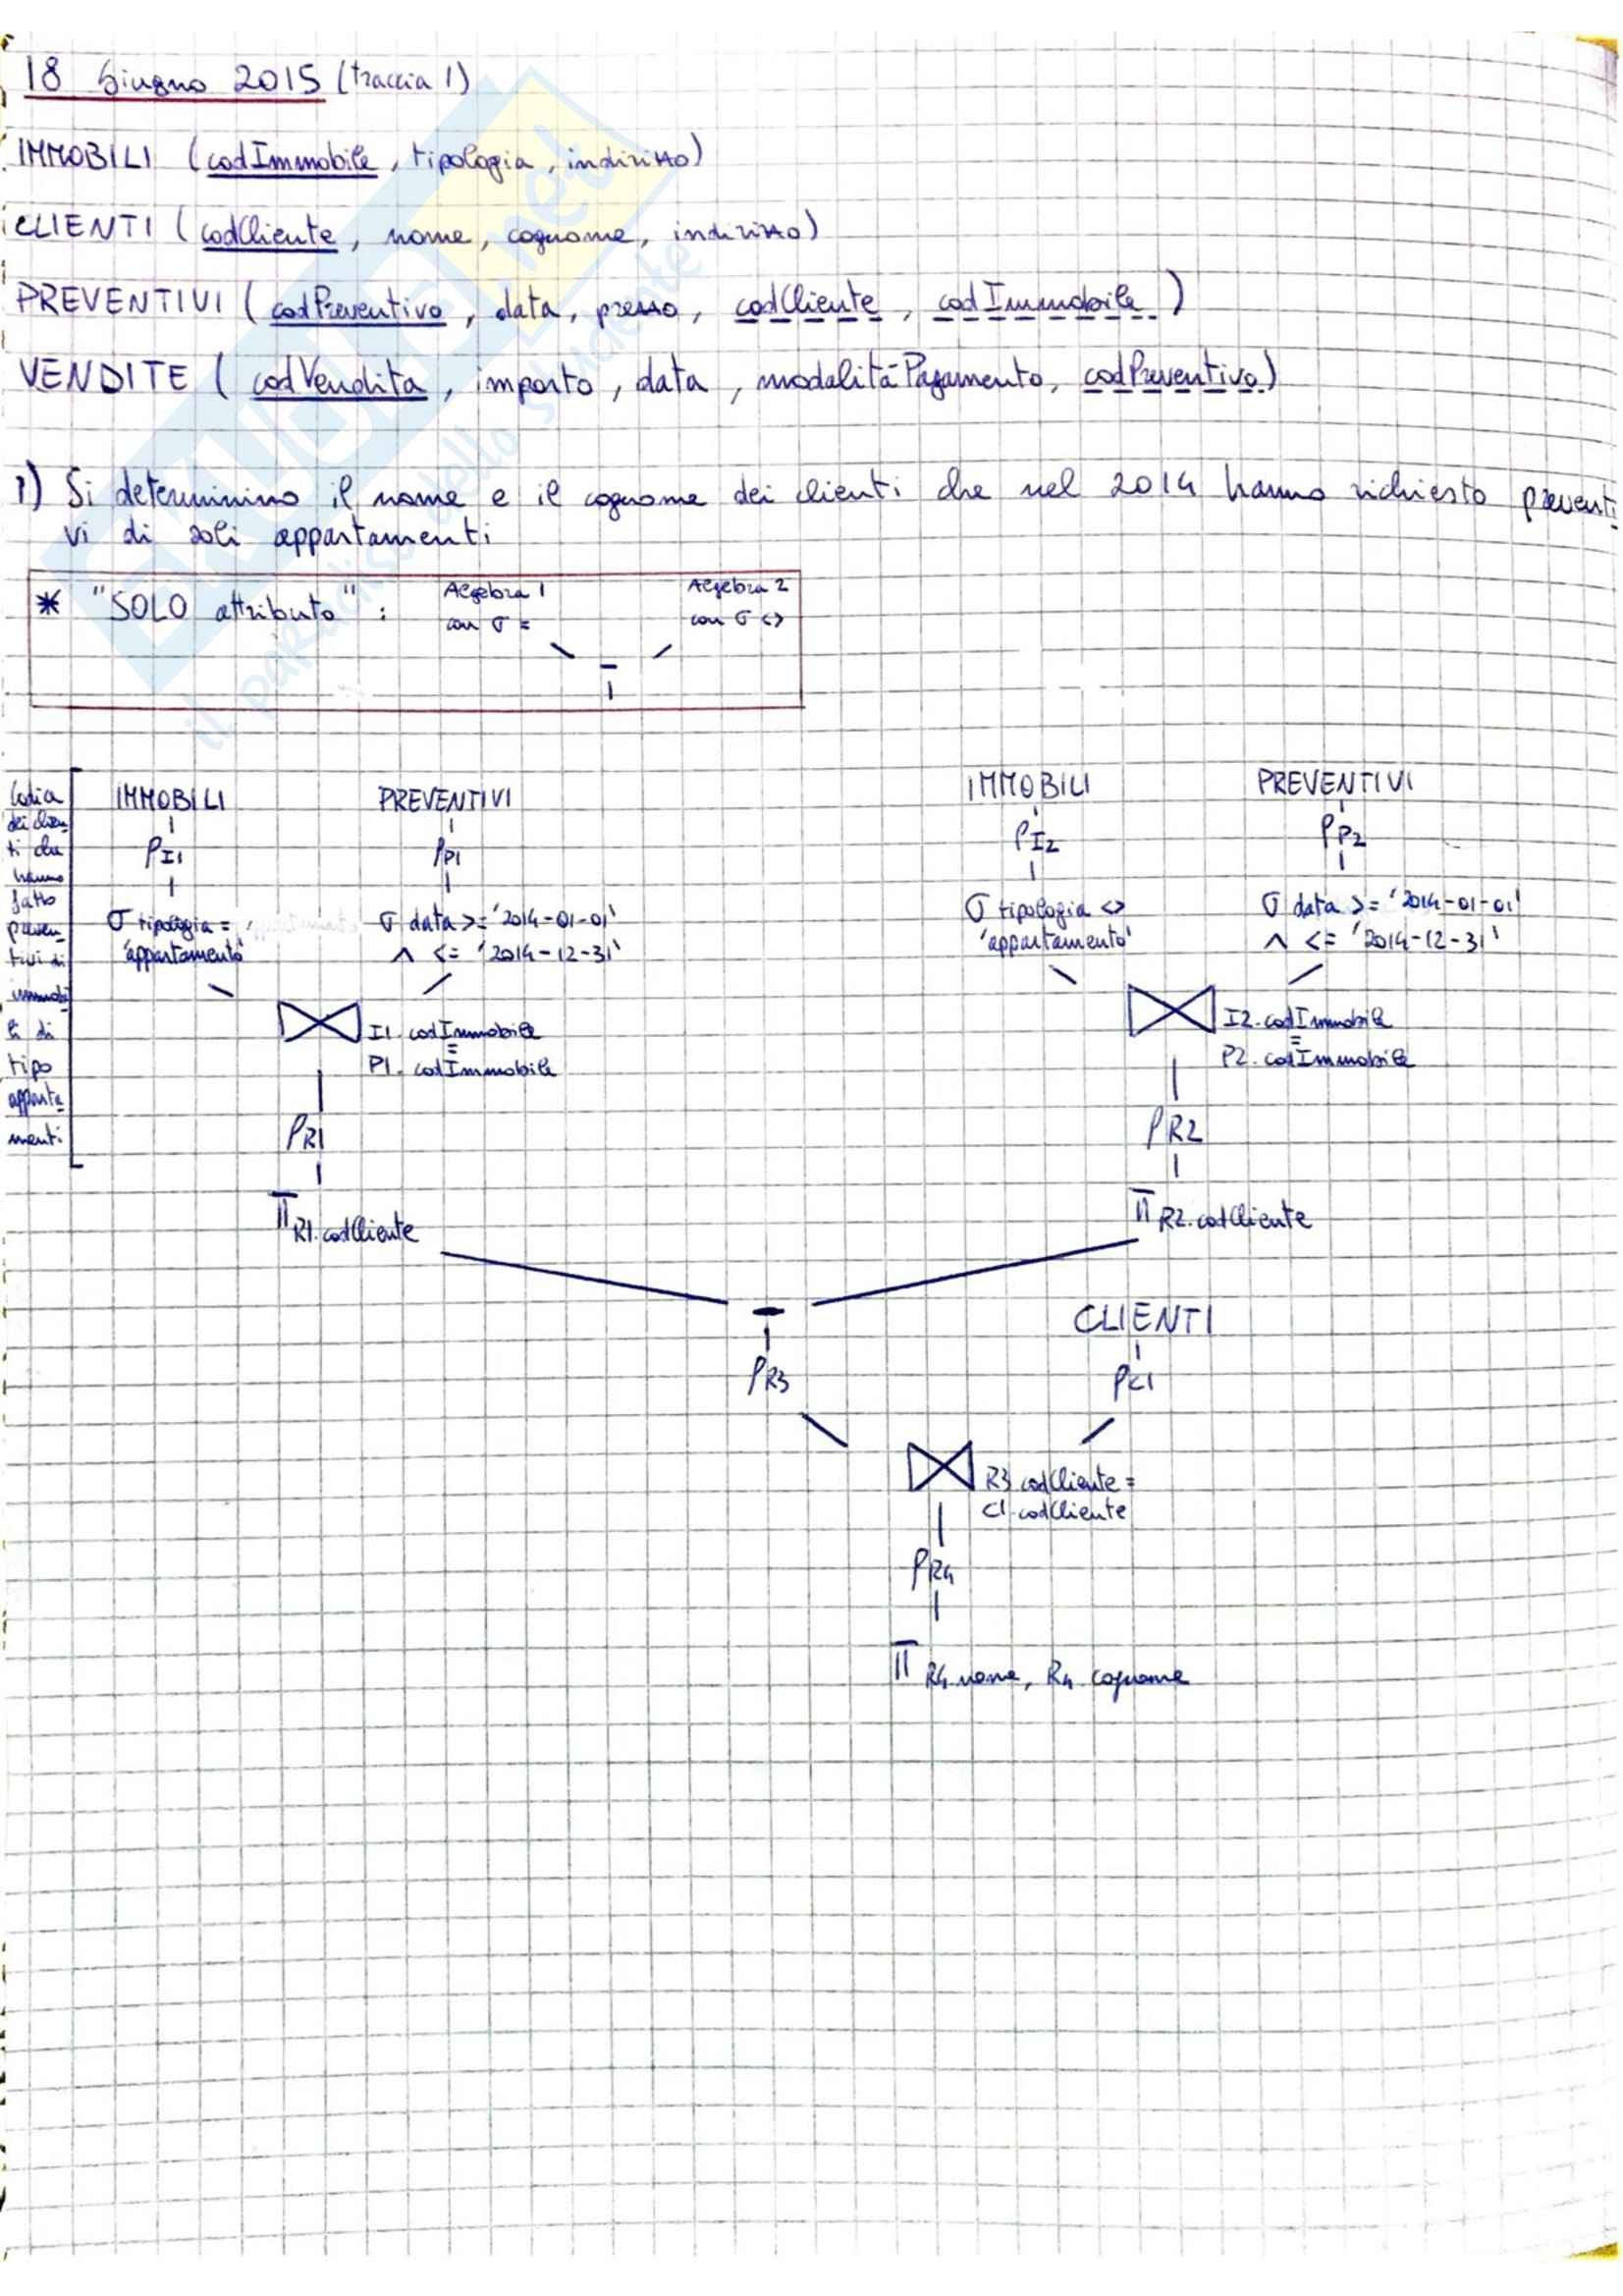 18 Giugno 2015 (traccia 1)
IMMOBILI (codImmobile, tipologia, indirizzo)
CLIENTI (codCliente, nome, cognome, indirizzo)
PREVENTIVI (codPreventivo, data, prezzo, codCliente, codImmobile)
VENDITE (codVendita, importo, data, modalitàPagamento, codPreventivo)
1) Si determinino il nome e il cognome dei clienti che nel 2014 hanno richiesto preventi
vi di soli appartamenti
* "SOLO attributo" : Algebra 1 Algebra 2
con σ = con σ <>
-
Codici
dei clien
ti che
hanno
fatto
preven-
tivi di
immobi
li di
tipo
apparta
menti
IMMOBILI PREVENTIVI
ρI1 ρP1
σ tipologia = σ data >= '2014-01-01'
'appartamento' ∧ <= '2014-12-31'
⋈ I1.codImmobile
=
P1.codImmobile
ρR1
π R1.codCliente
IMMOBILI PREVENTIVI
ρI2 ρP2
σ tipologia <> σ data >= '2014-01-01'
'appartamento' ∧ <= '2014-12-31'
⋈ I2.codImmobile
=
P2.codImmobile
ρR2
π R2.codCliente
-
CLIENTI
ρR3 ρC1
⋈ R3.codCliente =
C1.codCliente
ρR4
π R4.nome, R4.cognome
il paradiso dello studente